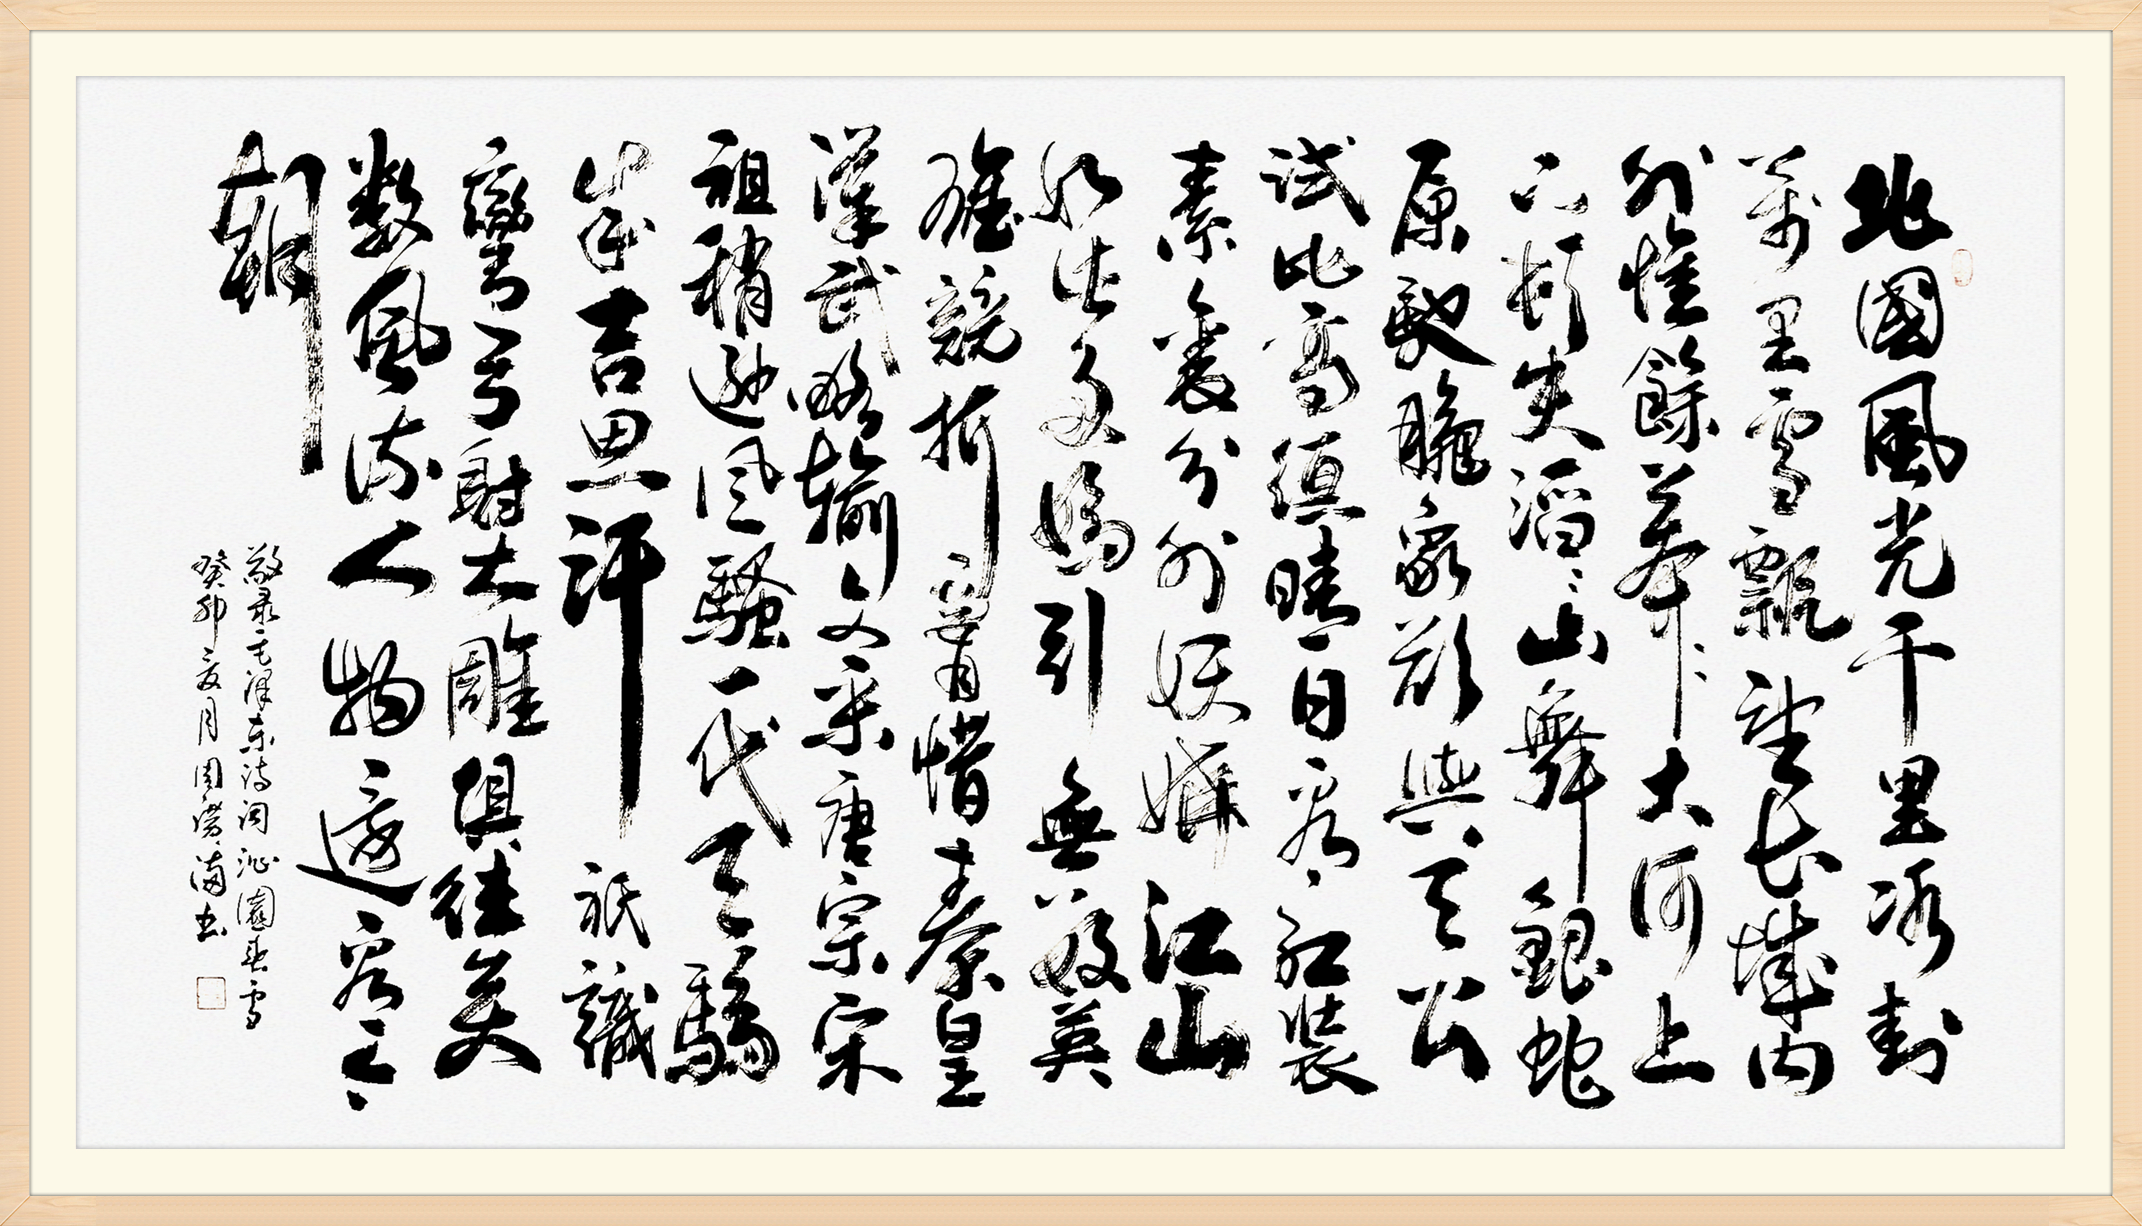 北國風光千里冰封
萬里雪飄望长城内
外惟餘莽〻大河上
下頓失滔〻山舞銀蛇
原馳臘象欲與天公
試比高須晴日看紅裝
素裹分外妖嬈江山
如此多嬌引無數英
雄競折腰惜秦皇
漢武略輸文采唐宗宋
祖稍遜風騷一代天驕
成吉思汗祇識
彎弓射大雕俱往矣
数風流人物還看今
朝
敬录毛泽东诗词沁園春雪
癸卯夏月周满书